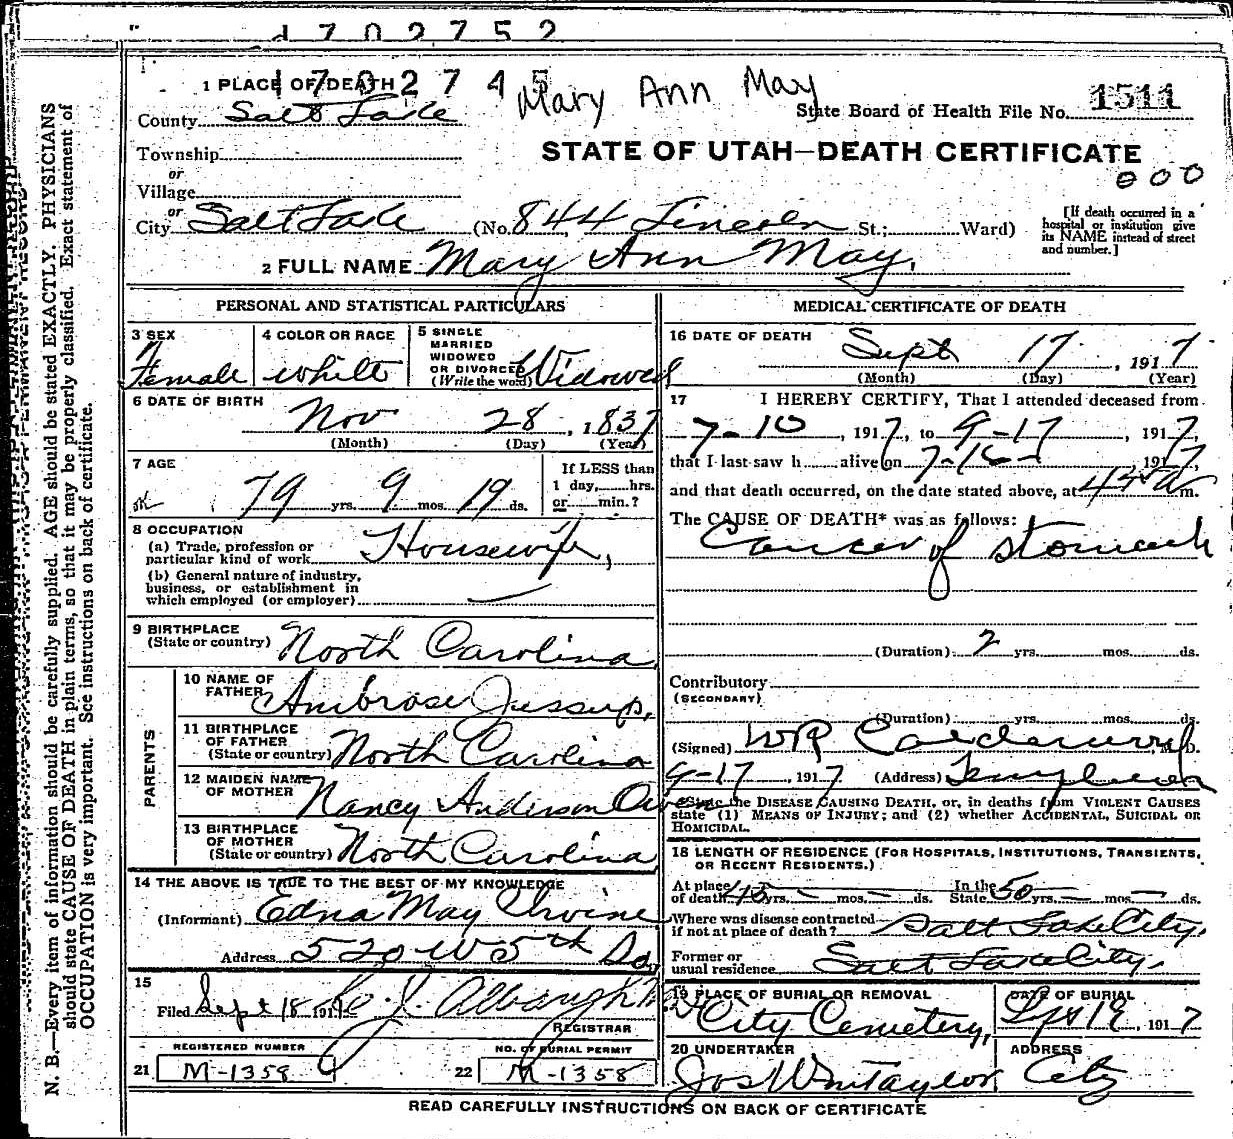 1702752
1702745
Mary Ann May
1 PLACE OF DEATH
County Salt Lake
State Board of Health File No. 1511
Township
or
Village
or
City Salt Lake (No. 844 Lincoln St.; Ward)
STATE OF UTAH—DEATH CERTIFICATE
000
[If death occurred in a
hospital or institution give
its NAME instead of street
and number.]
2 FULL NAME Mary Ann May.
PERSONAL AND STATISTICAL PARTICULARS
3 SEX
Female
4 COLOR OR RACE
white
5 SINGLE
MARRIED
WIDOWED
OR DIVORCED
(Write the word) Widowed
6 DATE OF BIRTH
Nov 28, 1837
(Month) (Day) (Year)
7 AGE
79 yrs. 9 mos. 19 ds.
If LESS than
1 day, hrs.
or min.?
8 OCCUPATION
(a) Trade, profession or
particular kind of work Housewife,
(b) General nature of industry,
business, or establishment in
which employed (or employer)
9 BIRTHPLACE
(State or country) North Carolina
PARENTS
10 NAME OF
FATHER Ambrose Jessup,
11 BIRTHPLACE
OF FATHER
(State or country) North Carolina
12 MAIDEN NAME
OF MOTHER Nancy Anderson Owen
13 BIRTHPLACE
OF MOTHER
(State or country) North Carolina
14 THE ABOVE IS TRUE TO THE BEST OF MY KNOWLEDGE
(Informant) Edna May Irvine
Address 520 W 5th So,
15
Filed Sept 18 191 J. Albaugh
REGISTRAR
REGISTERED NUMBER
21 M-1359
NO. OF BURIAL PERMIT
22 M-1358
MEDICAL CERTIFICATE OF DEATH
16 DATE OF DEATH
Sept 17, 1917
(Month) (Day) (Year)
17 I HEREBY CERTIFY, That I attended deceased from
7-10, 1917, to 9-17, 1917,
that I last saw h alive on 7-16-, 1917,
and that death occurred, on the date stated above, at 445 a m.
The CAUSE OF DEATH* was as follows:
Cancer of stomach
(Duration) 2 yrs. mos. ds.
Contributory
(SECONDARY)
(Duration) yrs. mos. ds.
(Signed) WR Calderwood M. D.
9-17, 1917 (Address)
*State the DISEASE CAUSING DEATH, or, in deaths from VIOLENT CAUSES
state (1) MEANS OF INJURY; and (2) whether ACCIDENTAL, SUICIDAL OR
HOMICIDAL.
18 LENGTH OF RESIDENCE (FOR HOSPITALS, INSTITUTIONS, TRANSIENTS,
OR RECENT RESIDENTS.)
At place In the
of death 45 yrs. — mos. — ds. State 50 yrs. — mos. — ds.
Where was disease contracted
if not at place of death? Salt Lake City,
Former or
usual residence Salt Lake City.
19 PLACE OF BURIAL OR REMOVAL
City Cemetery,
DATE OF BURIAL
Sept 19, 1917
20 UNDERTAKER
Jos Wm Taylor
ADDRESS
City
READ CAREFULLY INSTRUCTIONS ON BACK OF CERTIFICATE
N. B.—Every item of information should be carefully supplied. AGE should be stated EXACTLY. PHYSICIANS
should state CAUSE OF DEATH in plain terms, so that it may be properly classified. Exact statement of
OCCUPATION is very important. See instructions on back of certificate.